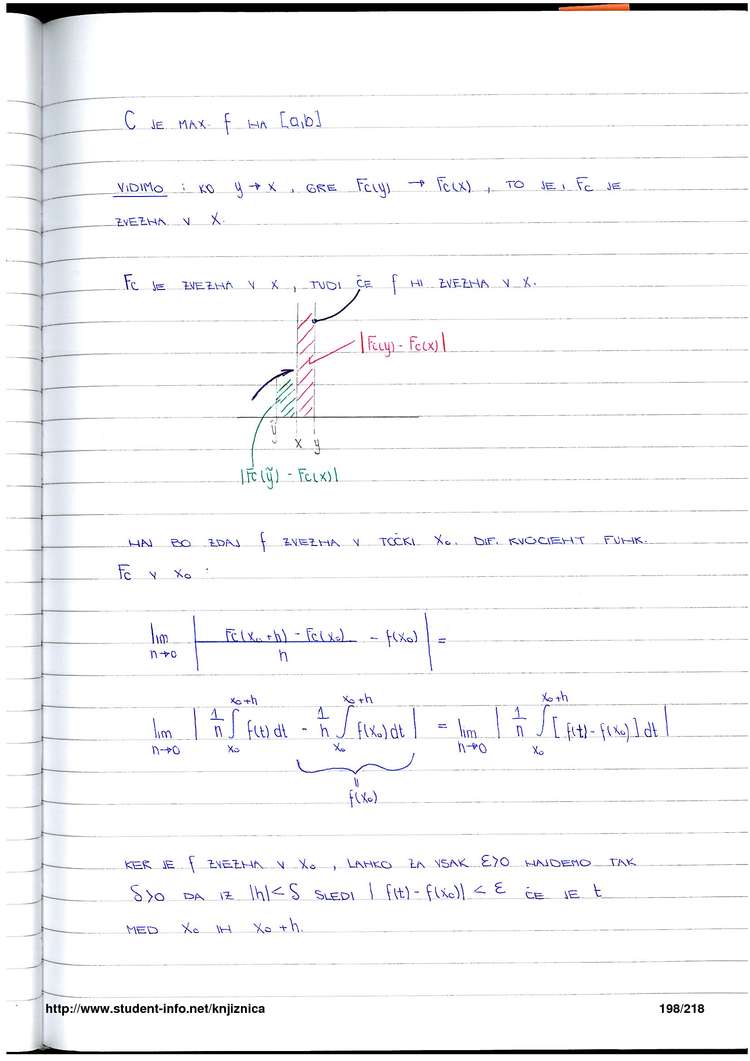 C JE MAX. f NA [a,b]
VIDIMO : KO y → x , GRE Fc(y) → Fc(x) , TO JE, Fc JE
ZVEZNA V X.
Fc JE ZVEZNA V X , TUDI ČE f NI ZVEZNA V X.
|Fc(y) - Fc(x)|
ỹ x y
|Fc(ỹ) - Fc(x)|
NAJ BO ZDAJ f ZVEZNA V TOČKI X₀. DIF. KVOCIENT FUNK.
Fc V X₀ :
lim h→0 | (Fc(x₀+h) - Fc(x₀))/h - f(x₀) | =
lim h→0 | 1/h ∫_{x₀}^{x₀+h} f(t)dt - 1/h ∫_{x₀}^{x₀+h} f(x₀)dt | = lim h→0 | 1/h ∫_{x₀}^{x₀+h} [f(t)-f(x₀)]dt |
=
f(x₀)
KER JE f ZVEZNA V X₀ , LAHKO ZA VSAK Ɛ>0 NAJDEMO TAK
δ>0 DA IZ |h|<δ SLEDI |f(t)-f(x₀)| < Ɛ ČE JE t
MED X₀ IN X₀+h.
http://www.student-info.net/knjiznica 198/218